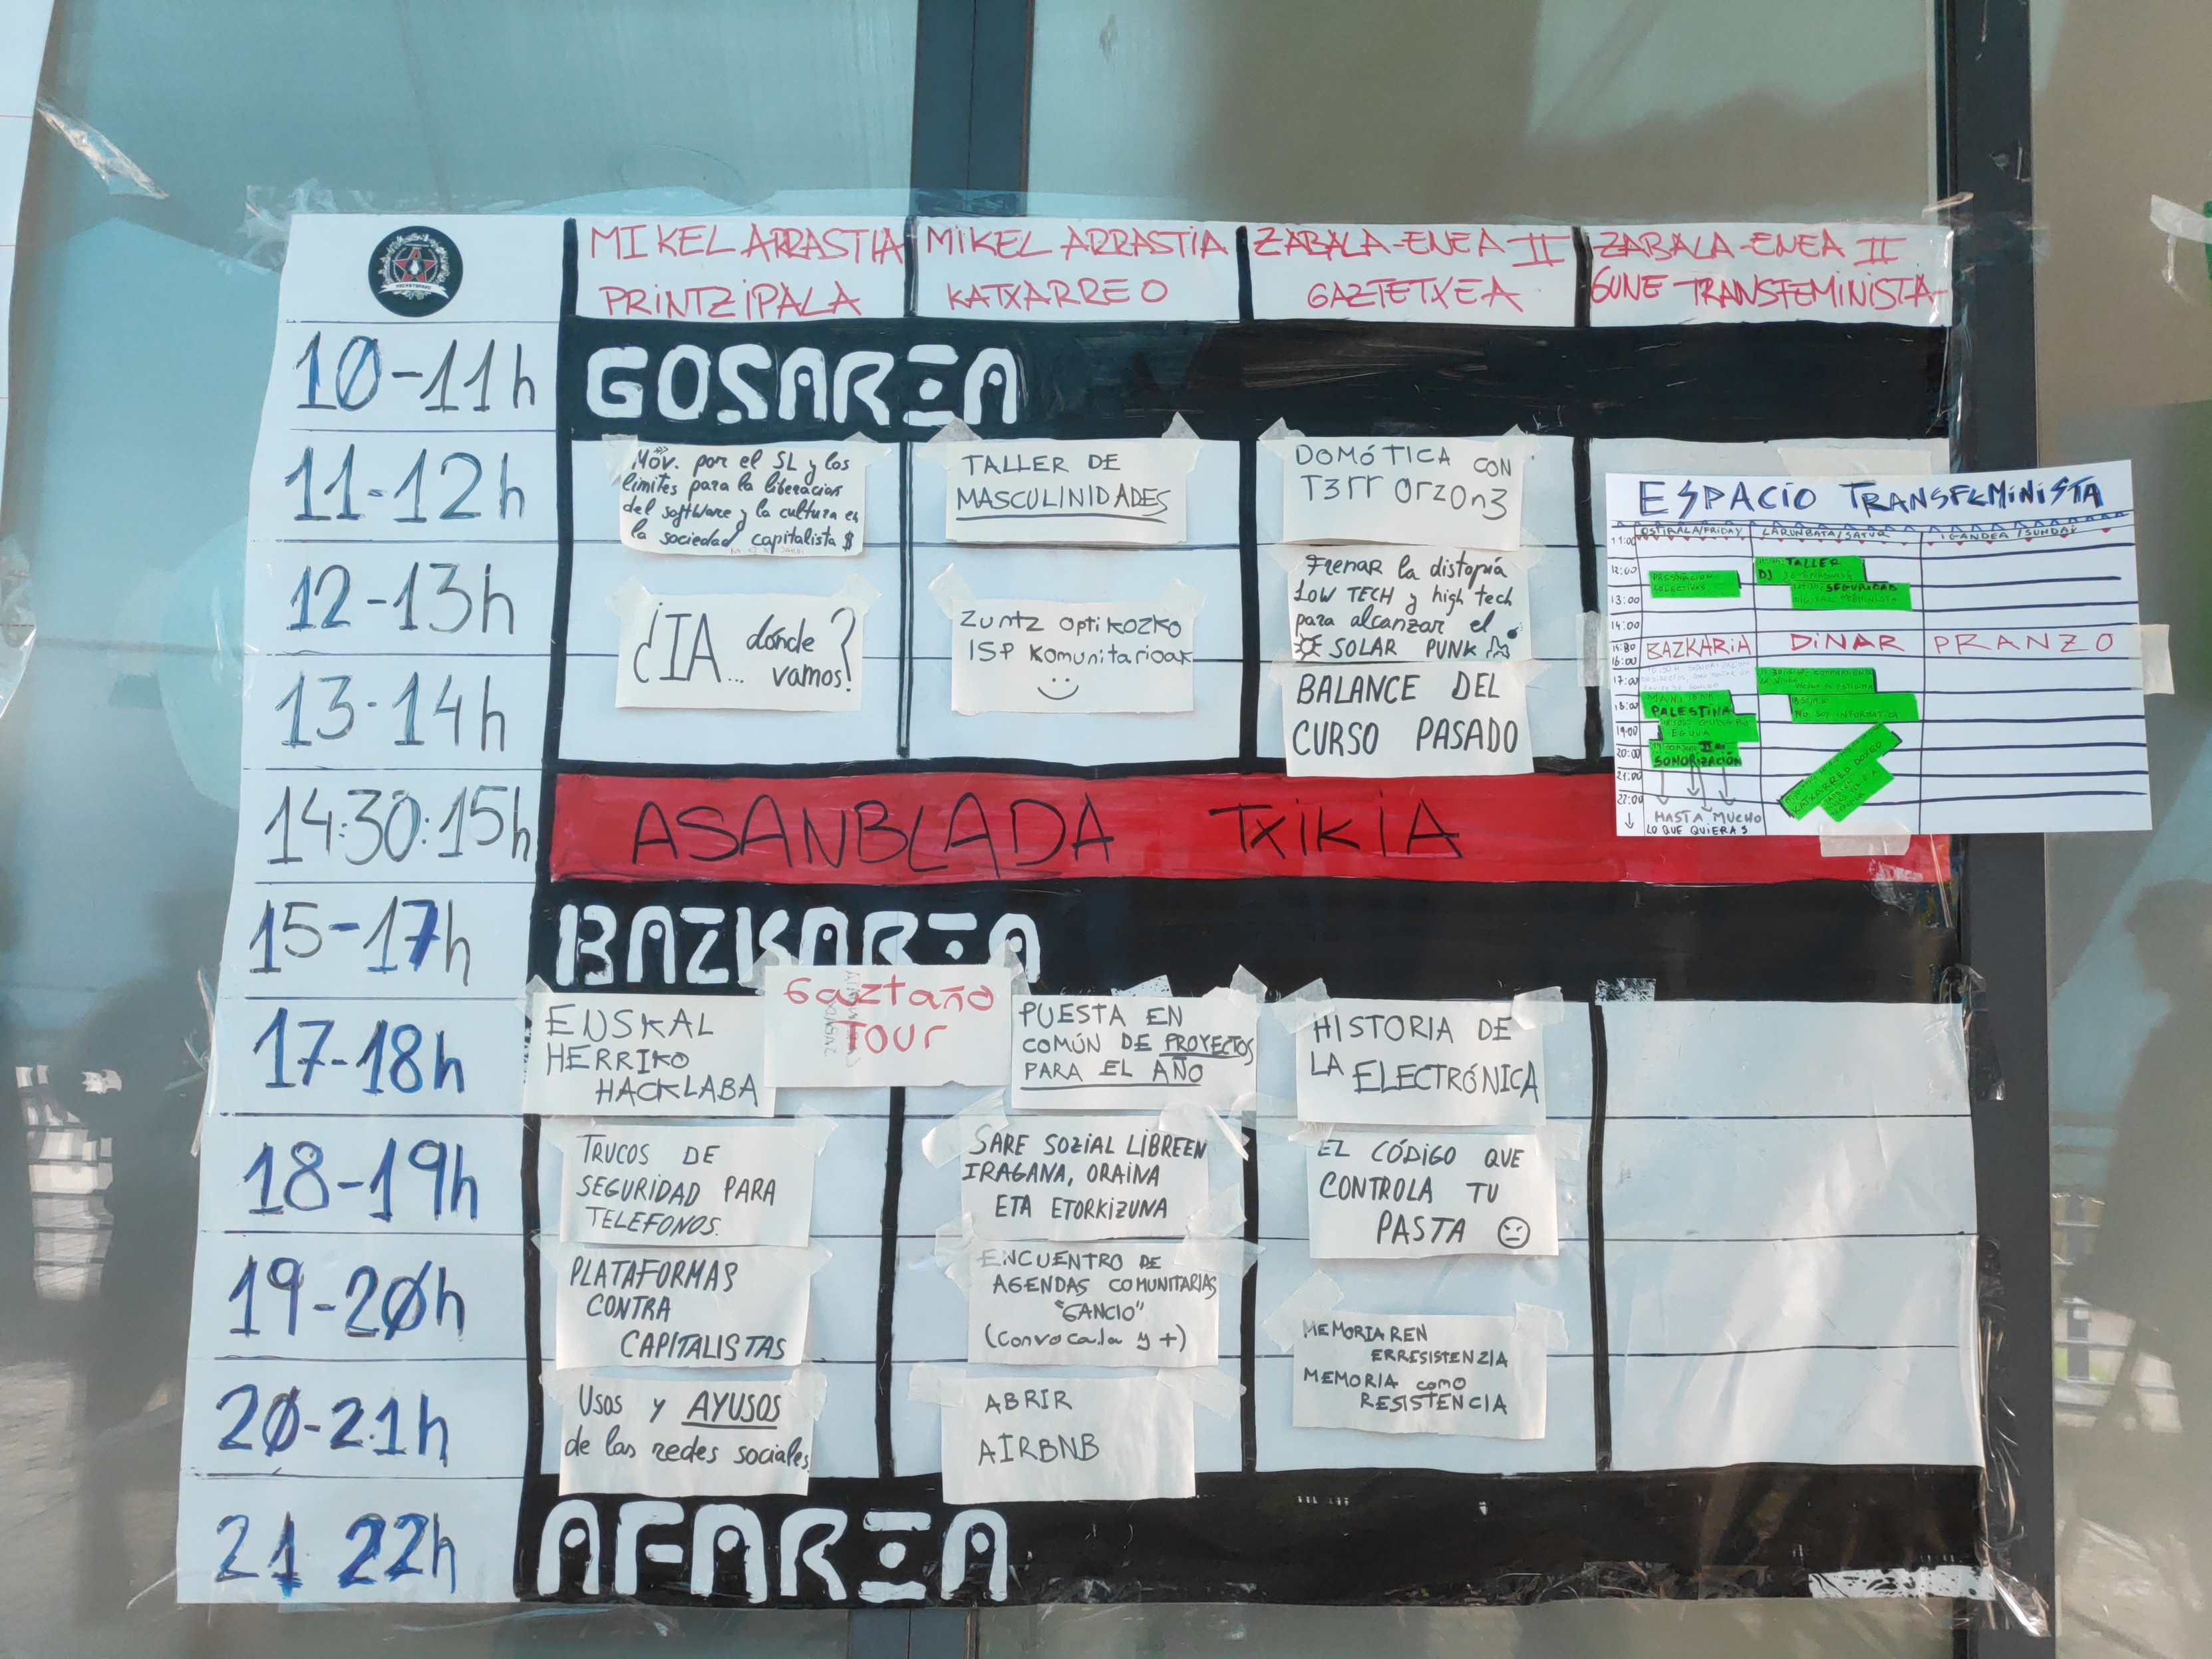 MIKEL ARRASTIA
PRINTZIPALA
MIKEL ARRASTIA
KATXARREO
ZABALA-ENEA II
GAZTETXEA
ZABALA-ENEA II
GUNE TRANSFEMINISTA
10-11h
GOSARIA
11-12h
Mov. por el SL y los
límites para la liberación
del software y la cultura en
la sociedad capitalista $
TALLER DE
MASCULINIDADES
DOMÓTICA CON
T3rr Orz0n3
12-13h
¿IA... dónde
vamos?
Zuntz optikozko
ISP komunitarioak
Frenar la distopía
LOW TECH y high tech
para alcanzar el
SOLAR PUNK
13-14h
BALANCE DEL
CURSO PASADO
14:30:15h
ASANBLADA TXIKIA
15-17h
BAZKARIA
17-18h
EUSKAL
HERRIKO
HACKLABA
Gaztaño
Tour
PUESTA EN
COMÚN DE PROYECTOS
PARA EL AÑO
HISTORIA DE
LA ELECTRÓNICA
18-19h
TRUCOS DE
SEGURIDAD PARA
TELEFONOS.
SARE SOZIAL LIBREEN
IRAGANA, ORAINA
ETA ETORKIZUNA
EL CÓDIGO QUE
CONTROLA TU
PASTA
19-20h
PLATAFORMAS
CONTRA
CAPITALISTAS
ENCUENTRO DE
AGENDAS COMUNITARIAS
"GANCIO"
(Convoca.la y +)
MEMORIAREN
ERRESISTENZIA
MEMORIA como
RESISTENCIA
20-21h
Usos y AYUSOS
de las redes sociales
ABRIR
AIRBNB
21 22h
AFARIA
ESPACIO TRANSFEMINISTA
OSTIRALA/FRIDAY
LARUNBATA/SATUR
IGANDEA/SUNDAY
11:00
12:00
PRESENTACION
COLECTIVAS
TALLER
DJ
SEGURIDAD
DIGITAL FEMINISTA
13:00
14:00
15:00
BAZKARIA DINAR PRANZO
16:00
17:00
18:00
PALESTINA
NO SOY INFORMATICA
19:00
20:00
SONORIZACIÓN
21:00
KATXARREO
22:00
HASTA MUCHO
LO QUE QUIERAS